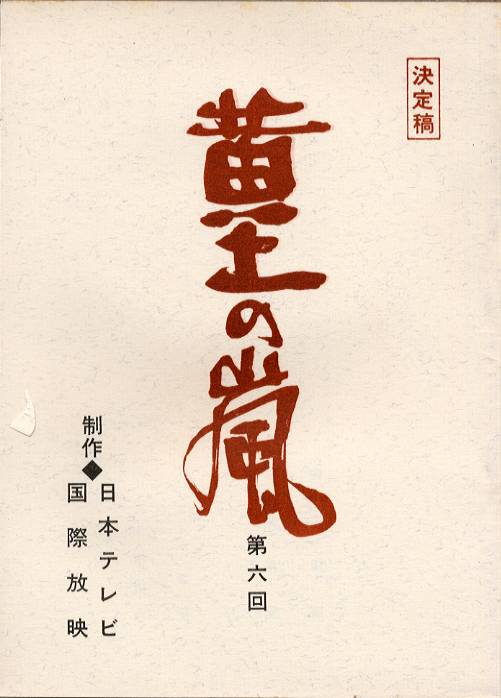 決定稿
黄土の嵐
第六回
制作◆日本テレビ
国際放映